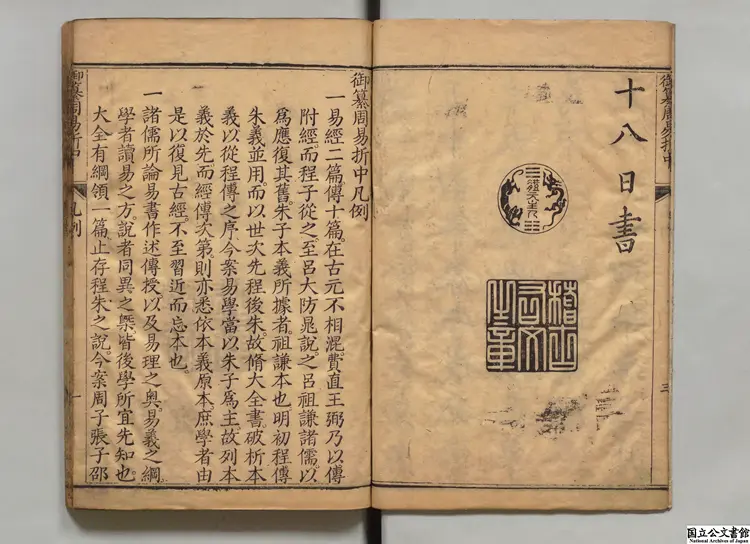 御纂周易折中
三
十八日書
體元主人
稽古右文之章
御纂周易折中凡例
一易經二篇傳十篇。在古元不相混。費直王弼乃以傳
附經。而程子從之。至呂大防晁說之。呂祖謙諸儒以
爲應復其舊。朱子本義所據者。祖謙本也。明初程傳
朱義並用。而以世次先程後朱。故脩大全書。破析本
義以從程傳之序。今案易學當以朱子爲主。故列本
義於先。而經傳次第。則亦悉依本義原本。庶學者由
是以復見古經。不至習近而忘本也。
一諸儒所論易書作述傳授。以及易理之奧。易義之綱
學者讀易之方。說者同異之槩。皆後學所宜先知也。
大全有綱領一篇。止存程朱之說。今案周子張子邵
御纂周易折中
凡例
一
国立公文書館
National Archives of Japan